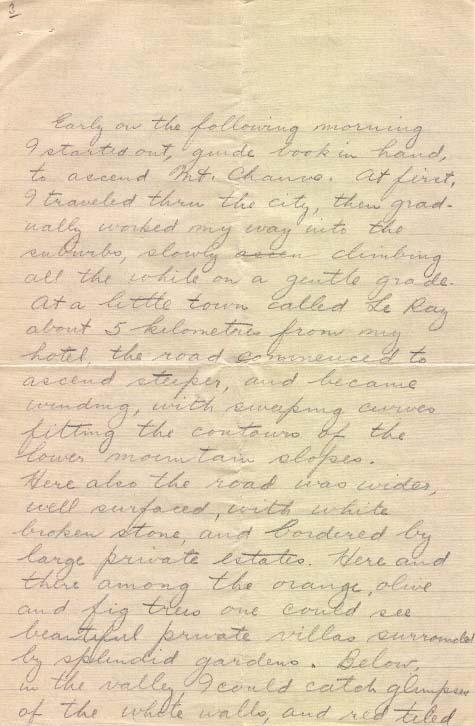 3
Early on the following morning
I started out, guide book in hand,
to ascend Mt. Chauve. At first,
I traveled thru the city, then grad-
ually worked my way into the
suburbs, slowly ascen climbing
all the while on a gentle grade.
At a little town called Le Ray
about 5 kilometres from my
hotel, the road commenced to
ascend steeper, and became
winding, with sweeping curves
fitting the contours of the
lower mountain slopes.
Here also the road was wider,
well surfaced, with white
broken stone, and bordered by
large private estates. Here and
there among the orange, olive
and fig trees one could see
beautiful private villas surrounded
by splendid gardens. Below,
in the valley, I could catch glimpses
of the white walls, and red tiled